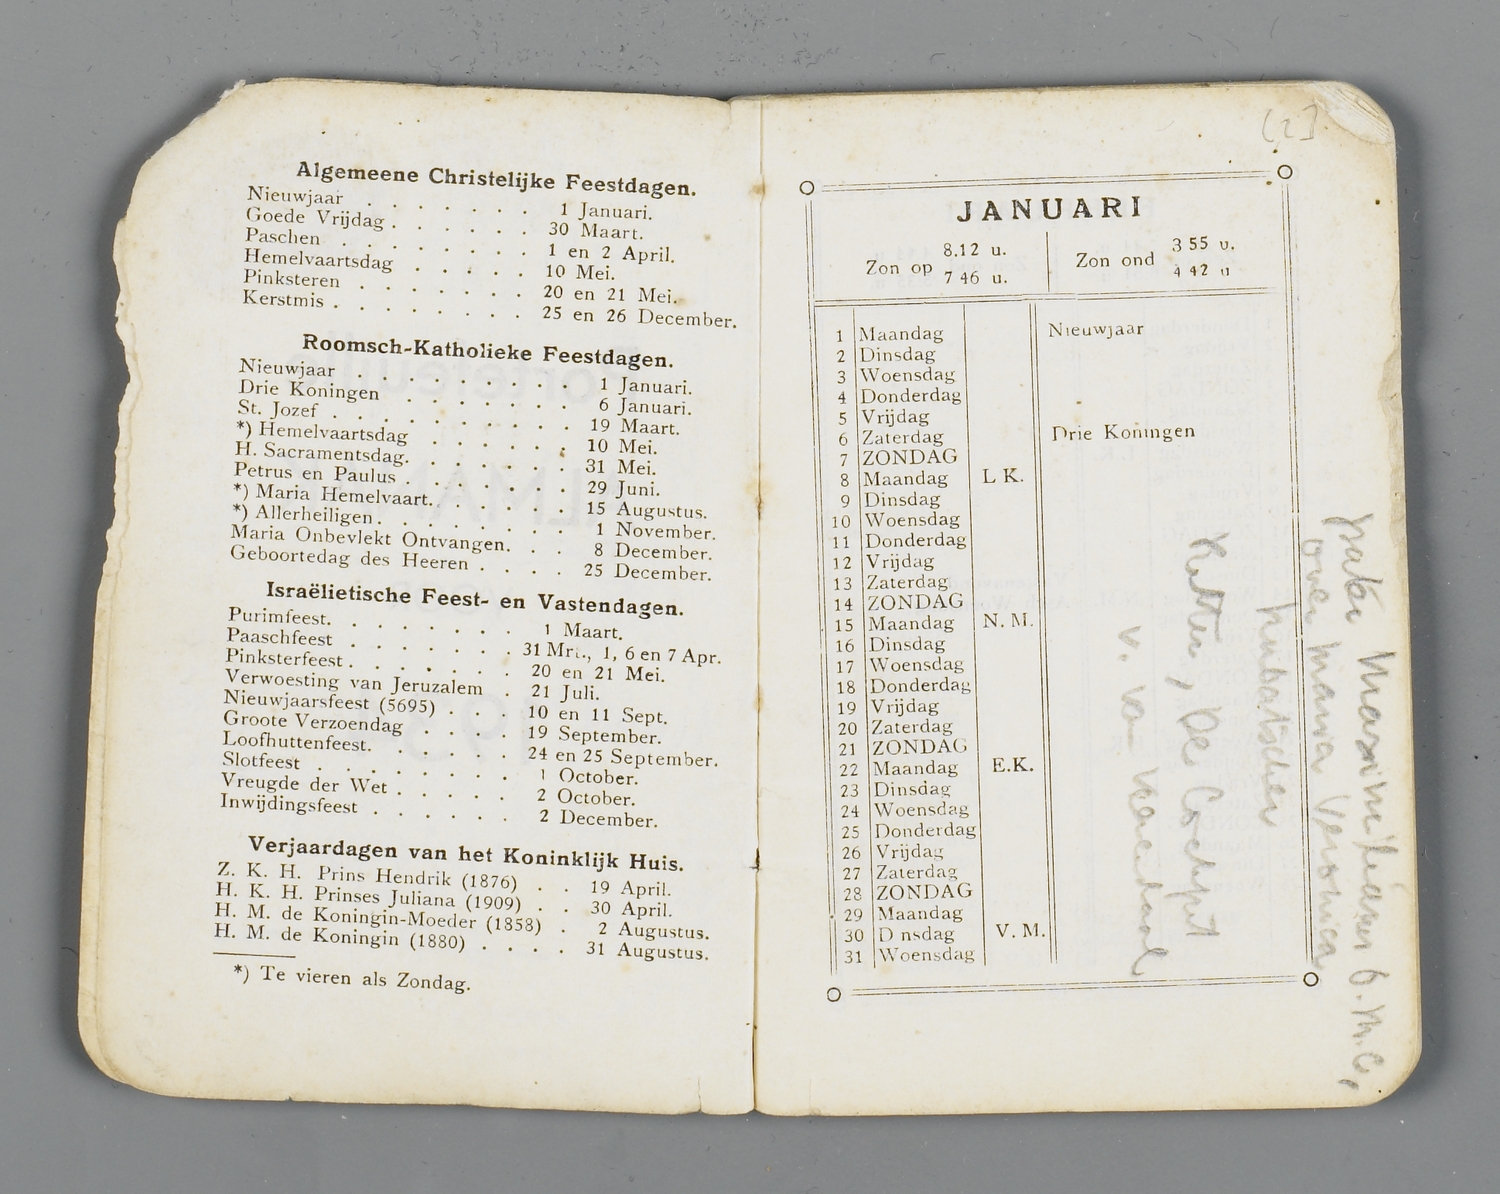 Algemeene Christelijke Feestdagen.
Nieuwjaar . . . . . . . 1 Januari.
Goede Vrijdag . . . . . . 30 Maart.
Paschen . . . . . . . . 1 en 2 April.
Hemelvaartsdag . . . . . 10 Mei.
Pinksteren . . . . . . . 20 en 21 Mei.
Kerstmis . . . . . . . . 25 en 26 December.
Roomsch-Katholieke Feestdagen.
Nieuwjaar . . . . . . . . 1 Januari.
Drie Koningen . . . . . . 6 Januari.
St. Jozef . . . . . . . . 19 Maart.
*) Hemelvaartsdag . . . . . 10 Mei.
H. Sacramentsdag. . . . . . 31 Mei.
Petrus en Paulus . . . . . . 29 Juni.
*) Maria Hemelvaart. . . . . . 15 Augustus.
*) Allerheiligen . . . . . . . 1 November.
Maria Onbevlekt Ontvangen. . . 8 December.
Geboortedag des Heeren . . . . 25 December.
Israëlietische Feest- en Vastendagen.
Purimfeest. . . . . . . . 1 Maart.
Paaschfeest . . . . . . . 31 Mrt., 1, 6 en 7 Apr.
Pinksterfeest . . . . . . . 20 en 21 Mei.
Verwoesting van Jeruzalem . 21 Juli.
Nieuwjaarsfeest (5695) . . . 10 en 11 Sept.
Groote Verzoendag . . . . 19 September.
Loofhuttenfeest. . . . . . 24 en 25 September.
Slotfeest . . . . . . . . 1 October.
Vreugde der Wet . . . . . 2 October.
Inwijdingsfeest . . . . . . 2 December.
Verjaardagen van het Koninklijk Huis.
Z. K. H. Prins Hendrik (1876) . . 19 April.
H. K. H. Prinses Juliana (1909) . . 30 April.
H. M. de Koningin-Moeder (1858) . 2 Augustus.
H. M. de Koningin (1880) . . . . 31 Augustus.
*) Te vieren als Zondag.
[2]
JANUARI
Zon op 8.12 u. 7 46 u. Zon ond 3 55 u. 4 42 u
1 Maandag Nieuwjaar
2 Dinsdag
3 Woensdag
4 Donderdag
5 Vrijdag
6 Zaterdag Drie Koningen
7 ZONDAG
8 Maandag L K.
9 Dinsdag
10 Woensdag
11 Donderdag
12 Vrijdag
13 Zaterdag
14 ZONDAG
15 Maandag N. M.
16 Dinsdag
17 Woensdag
18 Donderdag
19 Vrijdag
20 Zaterdag
21 ZONDAG
22 Maandag E.K.
23 Dinsdag
24 Woensdag
25 Donderdag
26 Vrijdag
27 Zaterdag
28 ZONDAG
29 Maandag
30 D nsdag V. M.
31 Woensdag
pater Maximiliaan O.M.C.
over Maria Veronica
Ketten, De Cockput